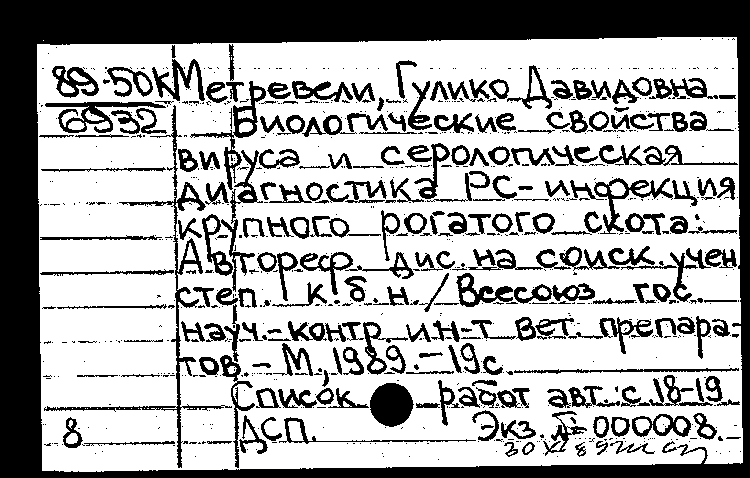 89-50К Метревели, Гулико Давидовна
6932 Биологические свойства
вируса и серологическая
диагностика РС-инфекция
крупного рогатого скота:
Автореф. дис. на соиск. учен
степ. к.б.н. / Всесоюз. гос.
науч.-контр. ин-т вет. препара-
тов. - М., 1989. - 19 с.
Список работ авт.: с. 18-19
8 ДСП. Экз. № 000008.
30 XI 89